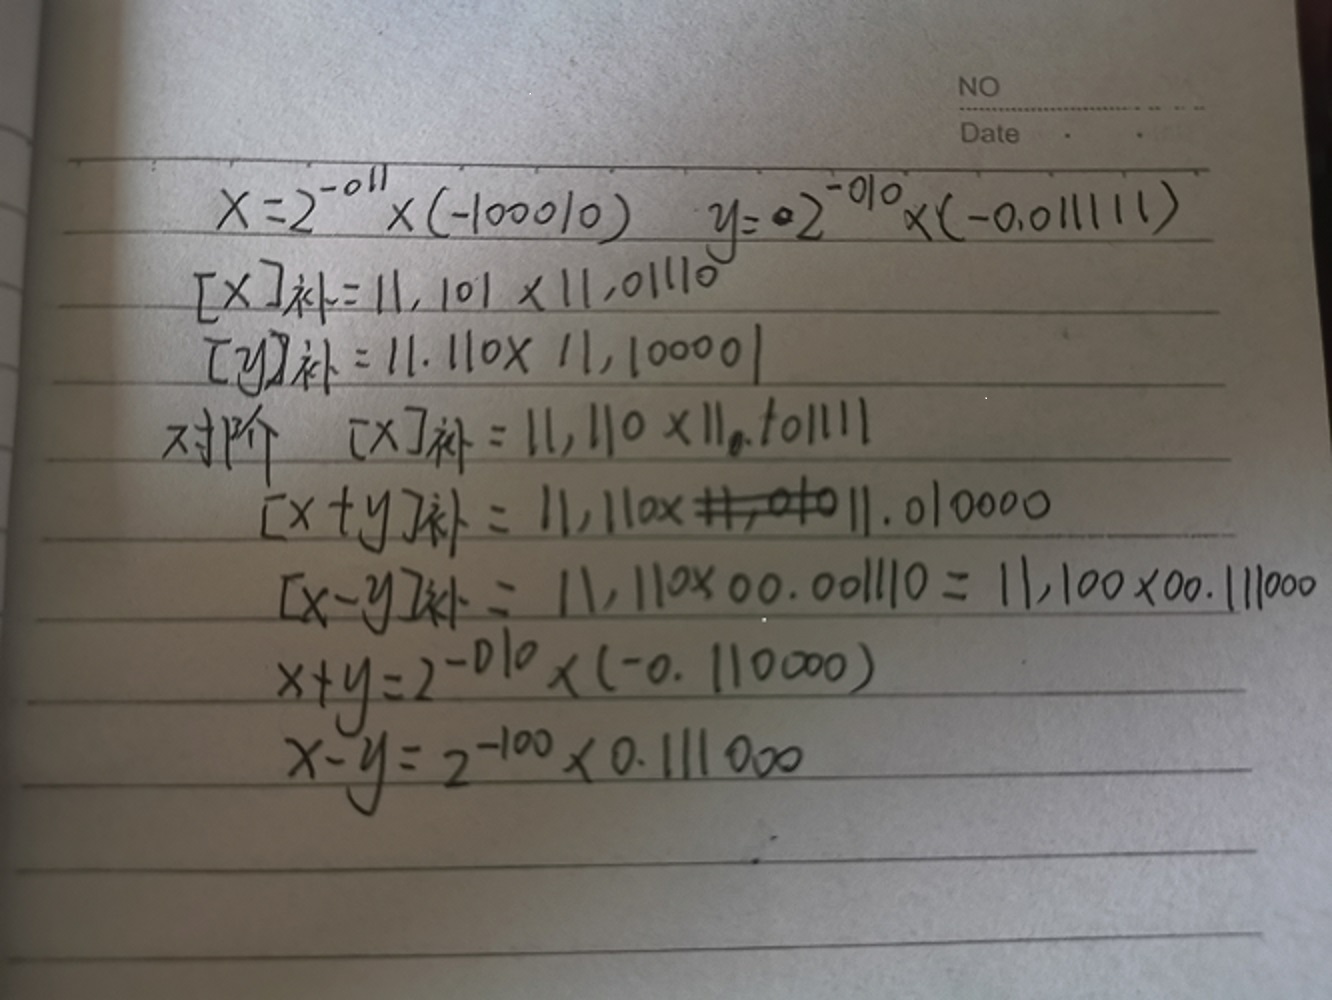 NO
Date
X=2^-011×(-100010) y=2^-010×(-0.011111)
[X]补=11,101×11,01110
[y]补=11.110×11,100001
对阶 [X]补=11,110×11.101111
[x+y]补=11,110×11.010000
[x-y]补=11,110×00.001110=11,100×00.111000
x+y=2^-010×(-0.110000)
x-y=2^-100×0.111000